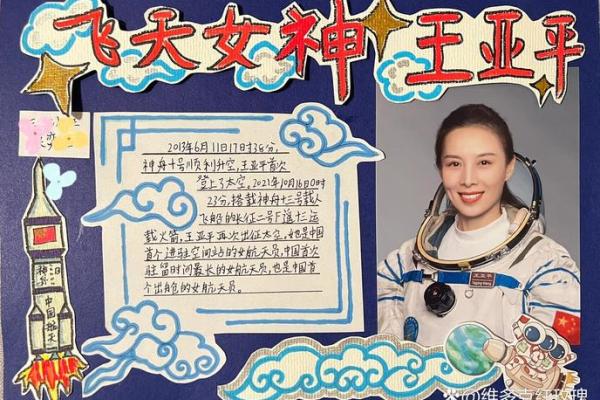 飞天女神 王亚平
2013年6月11日17时38分,
神舟十号顺利升空,王亚平首次
登上了太空。2021年10月16日0时
23分,搭载神舟十三号载人
飞船的长征二号F遥十三运
载火箭,王亚平再次出征太空,她是中国
首个进驻空间站的女航天员,中国首次
驻留时间最长的女航天员,也是中国首
个出舱的女航天员。
中国航天
王亚平
Yaping Wang